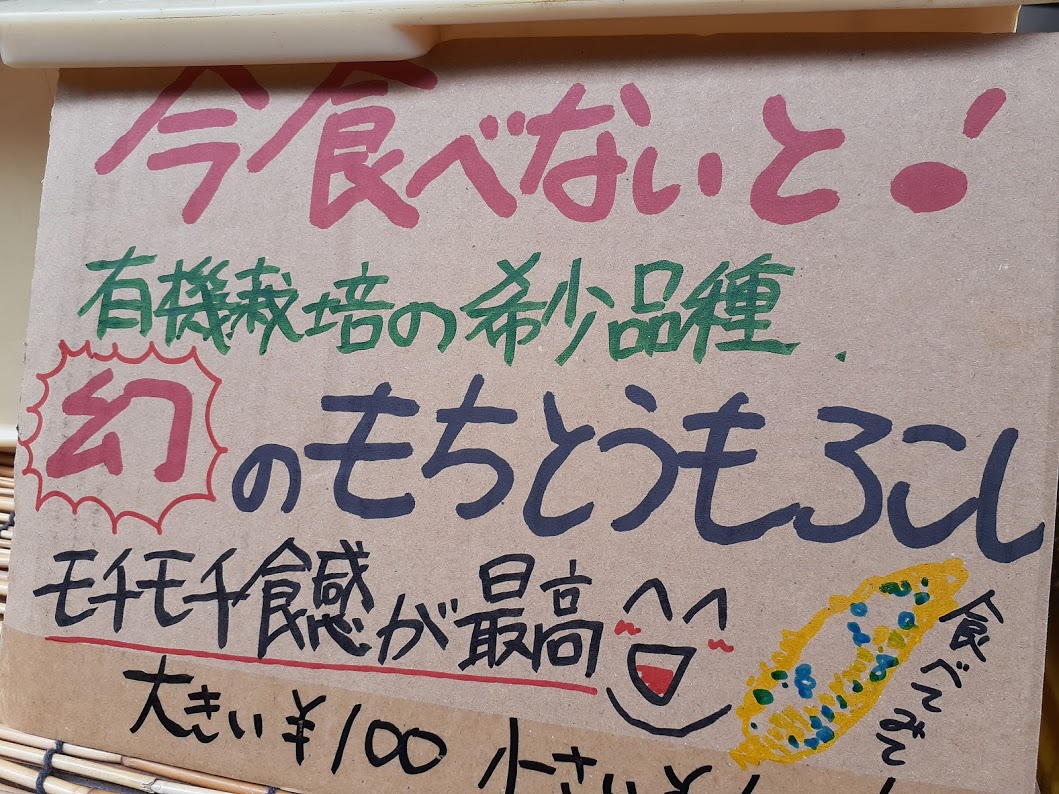 今食べないと!
有機栽培の希少品種.
幻のもちとうもろこし
モチモチ食感が最高
食べてみて
大きい¥100 小さい¥